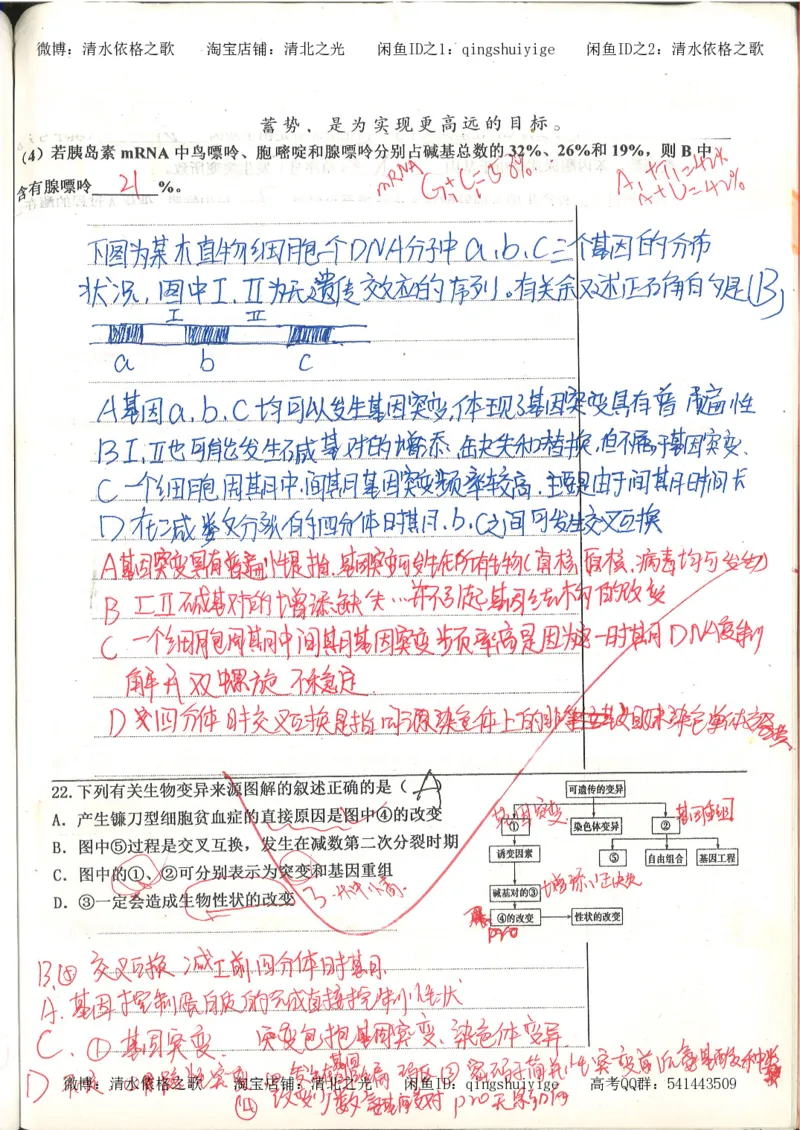 微博：清水依格之歌 淘宝店铺：清北之光 闲鱼ID之1：qingshuiyige 闲鱼ID之2：清水依格之歌
蓄势，是为实现更高远的目标。
(4) 若胰岛素 mRNA 中鸟嘌呤、胞嘧啶和腺嘌呤分别占碱基总数的 32%、26%和 19%，则 B 中
含有腺嘌呤 21 %。
mRNA G+C=58%
A+U=42%
下图为某木直物细胞一个DNA分子中a、b、c三个基因的分布
状况，图中I、II为无遗传效应的序列。有关叙述正确的是(B)
I II
a b c
A 基因a、b、c均可以发生基因突变，体现了基因突变具有普遍性
B I、II也可能发生碱基对的增添、缺失和替换，但不属于基因突变、
C 一个细胞周期中，间期基因突变频率较高，主要是由于间期时间长
D 在减数分裂的四分体时期，b、c之间可发生交叉互换
A 基因突变具有普遍性是指，基因突变可发生在所有生物(真核、原核、病毒均可发生)
B I II 碱基对的增添缺失…并不引起基因结构的改变
C 一个细胞周期中间期基因突变频率高是因为这一时期DNA复制
解开双螺旋 不稳定
D 四分体时交叉互换是指 同源染色体上的非姐妹染色单体交换
22.下列有关生物变异来源图解的叙述正确的是（ A
A．产生镰刀型细胞贫血症的直接原因是图中④的改变
B．图中⑤过程是交叉互换，发生在减数第二次分裂时期
C．图中的①、②可分别表示为突变和基因重组
D．③一定会造成生物性状的改变
可遗传的变异
基因突变 ① 染色体变异 ② 基因重组
诱变因素 ⑤ 自由组合 基因工程
碱基对的③ 增添、缺失
④的改变 性状的改变
pro
B.⑤ 交叉互换 减I前 四分体时期
A. 基因才控制蛋白质的合成直接控制性状
C. ① 基因突变 突变包括基因突变、染色体变异
D
微博：清水依格之歌 淘宝店铺：清北之光 闲鱼ID：qingshuiyige 高考QQ群：541443509
④ 改变少数 pro 无影响